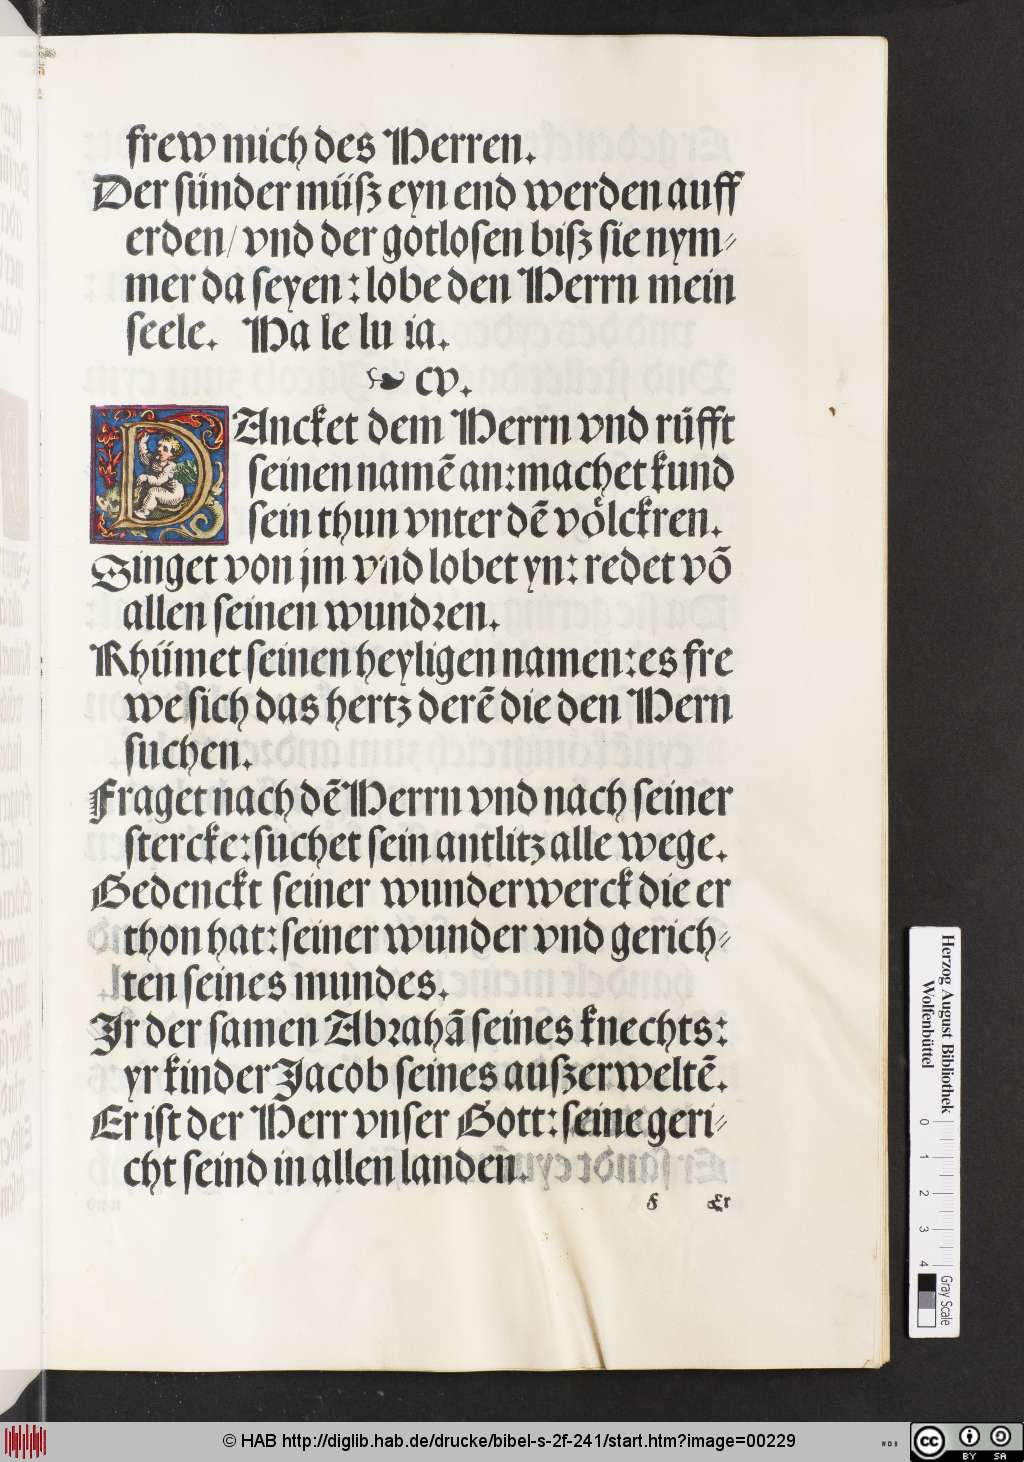 frew mich des Herren.
Der sünder müsz eyn end werden auff
erden/ vnd der gotlosen bisz sie nym⸗
mer da seyen: lobe den Herrn mein
seele. Ha le lu ia.
❧ cv.
DAncket dem Herrn vnd rüfft
seinen namē an: machet kund
sein thun vnter dē voͤlckren.
Singet von jm vnd lobet yn: redet vō
allen seinen wundꝛen.
Rhümet seinen heyligen namen: es fre
we sich das hertz derē die den Hern
suchen.
Fraget nach dē Herrn vnd nach seiner
stercke: suchet sein antlitz alle wege.
Gedenckt seiner wunderwerck die er
thon hat: seiner wunder vnd gerich⸗
ten seines mundes.
Jr der samen Abꝛahā seines knechts:
yr kinder Jacob seines auszerweltē.
Er ist der Herr vnser Gott: seine geri⸗
cht seind in allen landen.
§ Er
Herzog August Bibliothek
Wolfenbüttel
0 1 2 3 4
Gray Scale
© HAB http://diglib.hab.de/drucke/bibel-s-2f-241/start.htm?image=00229
WDB
cc BY SA